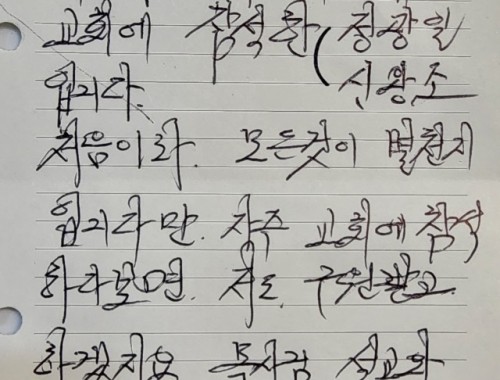 교회에 참석한 (정광일
입니다. 신왕조
처음이라. 모든것이 별천지
입니다만. 자주 교회에 참석
하다보면. 저도. 구원받고
하겠지요 목사님 설교와